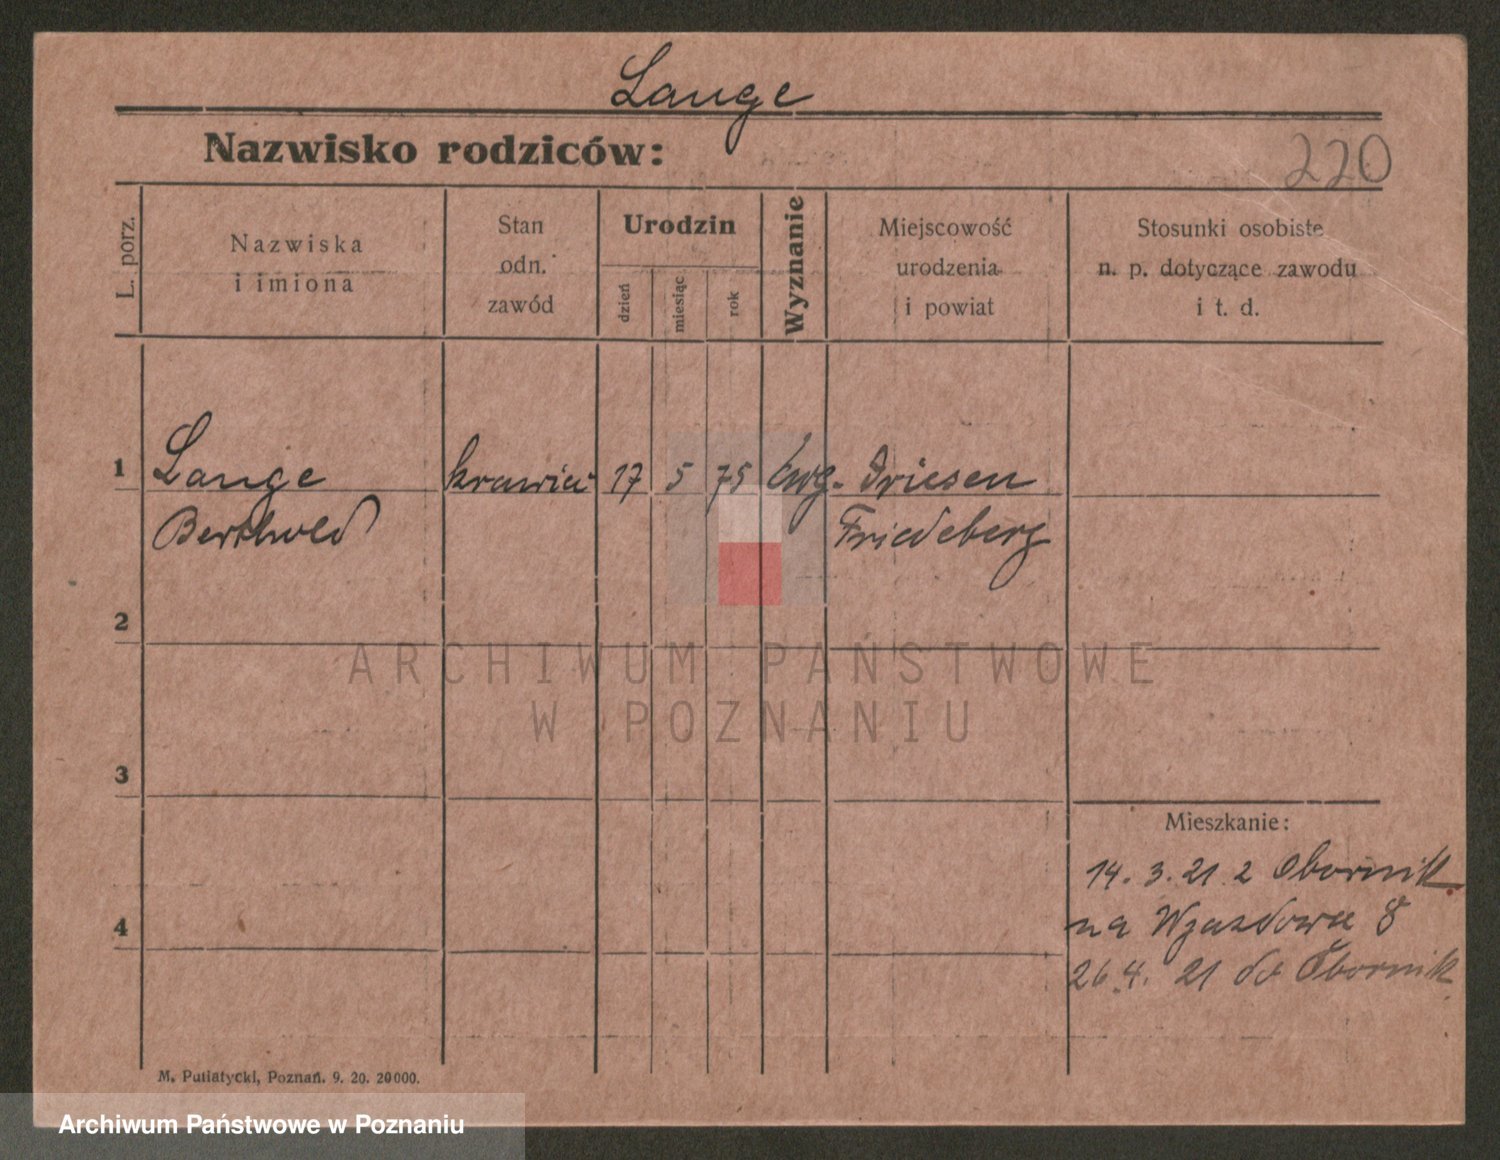 Lange
Nazwisko rodziców:
220
L. porz.
Nazwiska
i imiona
Stan
odn.
zawód
Urodzin
dzień
miesiąc
rok
Wyznanie
Miejscowość
urodzenia
i powiat
Stosunki osobiste
n. p. dotyczące zawodu
i t. d.
1 Lange krawiec 17 5 75 Ewg. Driesen
Berthold Friedeberg
2
ARCHIWUM PAŃSTWOWE
W POZNANIU
3
Mieszkanie:
14. 3. 21 z Obornik
4
na Wjazdowa 8
26. 4. 21 do Obornik
M. Putiatycki, Poznań. 9. 20. 20000.
Archiwum Państwowe w Poznaniu